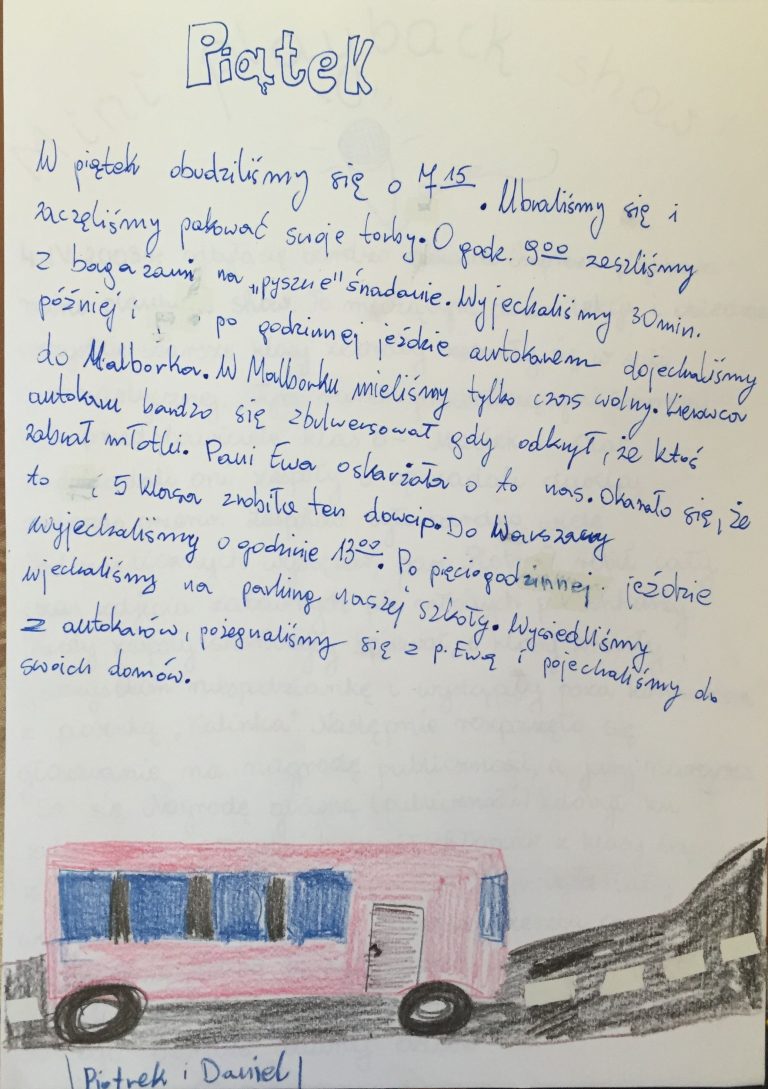 Piątek
W piątek obudziliśmy się o 7 15. Ubraliśmy się i
zaczęliśmy pakować swoje torby. O godz. 900 zeszliśmy
z bagażami na „pyszne" śnadanie. Wyjechaliśmy 30min.
później i po godzinnej jeździe autokarem dojechaliśmy
do Malborka. W Malborku mieliśmy tylko czas wolny. Kierowca
autokaru bardzo się zbulwersował gdy odkrył, że ktoś
zabrał młotki. Pani Ewa oskarżała o to nas. Okazało się, że
to i 5 klasa zrobiła ten dowcip. Do Warszawy
wyjechaliśmy o godzinie 1300. Po pięciogodzinnej jeździe
wjechaliśmy na parking naszej szkoły. Wysiedliśmy
z autokarów, pożegnaliśmy się z p. Ewą i pojechaliśmy do
swoich domów.
Piotrek i Daniel